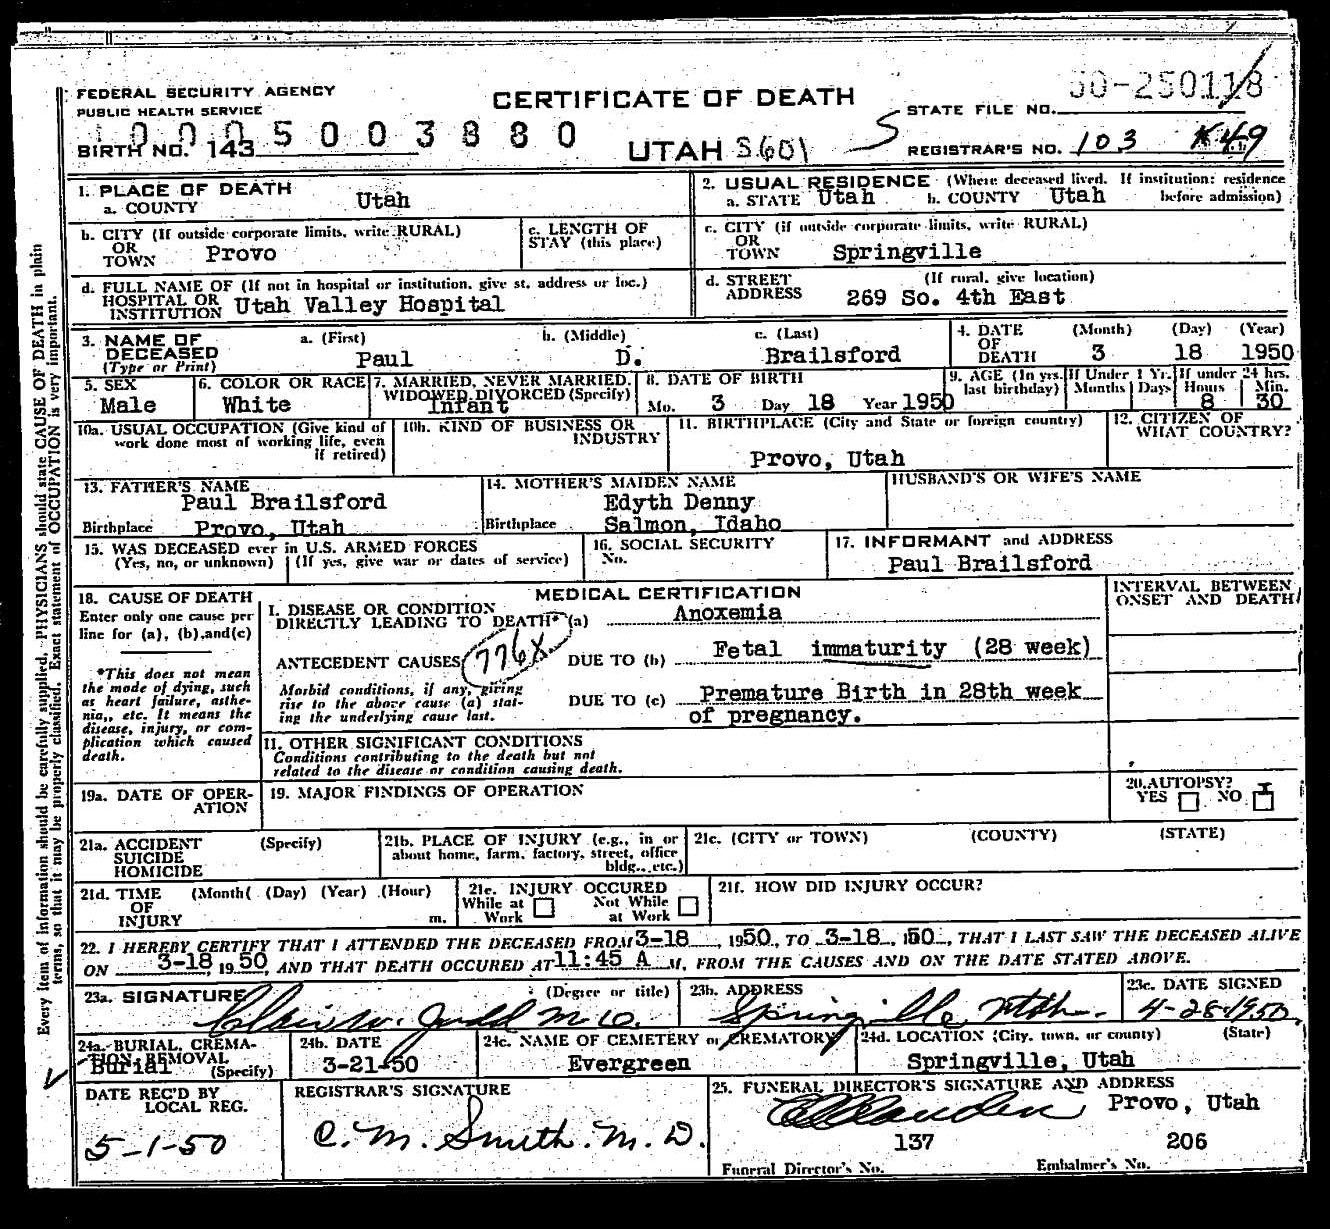 FEDERAL SECURITY AGENCY
PUBLIC HEALTH SERVICE
CERTIFICATE OF DEATH
STATE FILE NO. 50-250118
BIRTH NO. 143 5003880
UTAH S601
REGISTRAR'S NO. 103
1. PLACE OF DEATH
a. COUNTY Utah
2. USUAL RESIDENCE (Where deceased lived. If institution: residence before admission)
a. STATE Utah b. COUNTY Utah
b. CITY (If outside corporate limits, write RURAL)
OR
TOWN Provo
c. LENGTH OF
STAY (this place)
c. CITY (if outside corporate limits, write RURAL)
OR
TOWN Springville
d. FULL NAME OF (If not in hospital or institution, give st. address or loc.)
HOSPITAL OR
INSTITUTION Utah Valley Hospital
d. STREET (If rural, give location)
ADDRESS 269 So. 4th East
3. NAME OF
DECEASED
(Type or Print)
a. (First) b. (Middle) c. (Last)
Paul D. Brailsford
4. DATE (Month) (Day) (Year)
OF
DEATH 3 18 1950
5. SEX
Male
6. COLOR OR RACE
White
7. MARRIED, NEVER MARRIED,
WIDOWED DIVORCED (Specify)
Infant
8. DATE OF BIRTH
Mo. 3 Day 18 Year 1950
9. AGE (In yrs. last birthday)
If Under 1 Yr.
Months Days
If under 24 hrs.
Hours Min.
8 30
10a. USUAL OCCUPATION (Give kind of
work done most of working life, even
if retired)
10b. KIND OF BUSINESS OR
INDUSTRY
11. BIRTHPLACE (City and State or foreign country)
Provo, Utah
12. CITIZEN OF
WHAT COUNTRY?
13. FATHER'S NAME
Paul Brailsford
Birthplace Provo, Utah
14. MOTHER'S MAIDEN NAME
Edyth Denny
Birthplace Salmon, Idaho
HUSBAND'S OR WIFE'S NAME
15. WAS DECEASED ever in U.S. ARMED FORCES
(Yes, no, or unknown) (If yes, give war or dates of service)
16. SOCIAL SECURITY
No.
17. INFORMANT and ADDRESS
Paul Brailsford
18. CAUSE OF DEATH
Enter only one cause per
line for (a), (b), and (c)
*This does not mean
the mode of dying, such
as heart failure, asthe-
nia,, etc. It means the
disease, injury, or com-
plication which caused
death.
MEDICAL CERTIFICATION
INTERVAL BETWEEN
ONSET AND DEATH
I. DISEASE OR CONDITION
DIRECTLY LEADING TO DEATH* (a) Anoxemia
ANTECEDENT CAUSES 776X DUE TO (b) Fetal immaturity (28 week)
Morbid conditions, if any, giving
rise to the above cause (a) stat-
ing the underlying cause last.
DUE TO (c) Premature Birth in 28th week
of pregnancy.
11. OTHER SIGNIFICANT CONDITIONS
Conditions contributing to the death but not
related to the disease or condition causing death.
19a. DATE OF OPER-
ATION
19. MAJOR FINDINGS OF OPERATION
20. AUTOPSY?
YES NO X
21a. ACCIDENT (Specify)
SUICIDE
HOMICIDE
21b. PLACE OF INJURY (e.g., in or
about home, farm, factory, street, office
bldg., etc.)
21c. (CITY or TOWN) (COUNTY) (STATE)
21d. TIME (Month( (Day) (Year) (Hour)
OF
INJURY m.
21e. INJURY OCCURED
While at Work Not While at Work
21f. HOW DID INJURY OCCUR?
22. I HEREBY CERTIFY THAT I ATTENDED THE DECEASED FROM 3-18, 1950, TO 3-18, 150, THAT I LAST SAW THE DECEASED ALIVE
ON 3-18, 1950, AND THAT DEATH OCCURED AT 11:45 A M, FROM THE CAUSES AND ON THE DATE STATED ABOVE.
23a. SIGNATURE (Degree or title)
Judd M.D.
23b. ADDRESS
Springville, Utah.
23c. DATE SIGNED
4-28-1950
24a. BURIAL, CREMA-
TION, REMOVAL
Burial (Specify)
24b. DATE
3-21-50
24c. NAME OF CEMETERY or CREMATORY
Evergreen
24d. LOCATION (City, town, or county) (State)
Springville, Utah
DATE REC'D BY
LOCAL REG.
5-1-50
REGISTRAR'S SIGNATURE
C. M. Smith. M. D.
25. FUNERAL DIRECTOR'S SIGNATURE AND ADDRESS
Provo, Utah
137 206
Funeral Director's No. Embalmer's No.
Every item of information should be carefully supplied, PHYSICIANS should state CAUSE OF DEATH in plain
terms, so that it may be properly classified. Exact statement of OCCUPATION is very important.